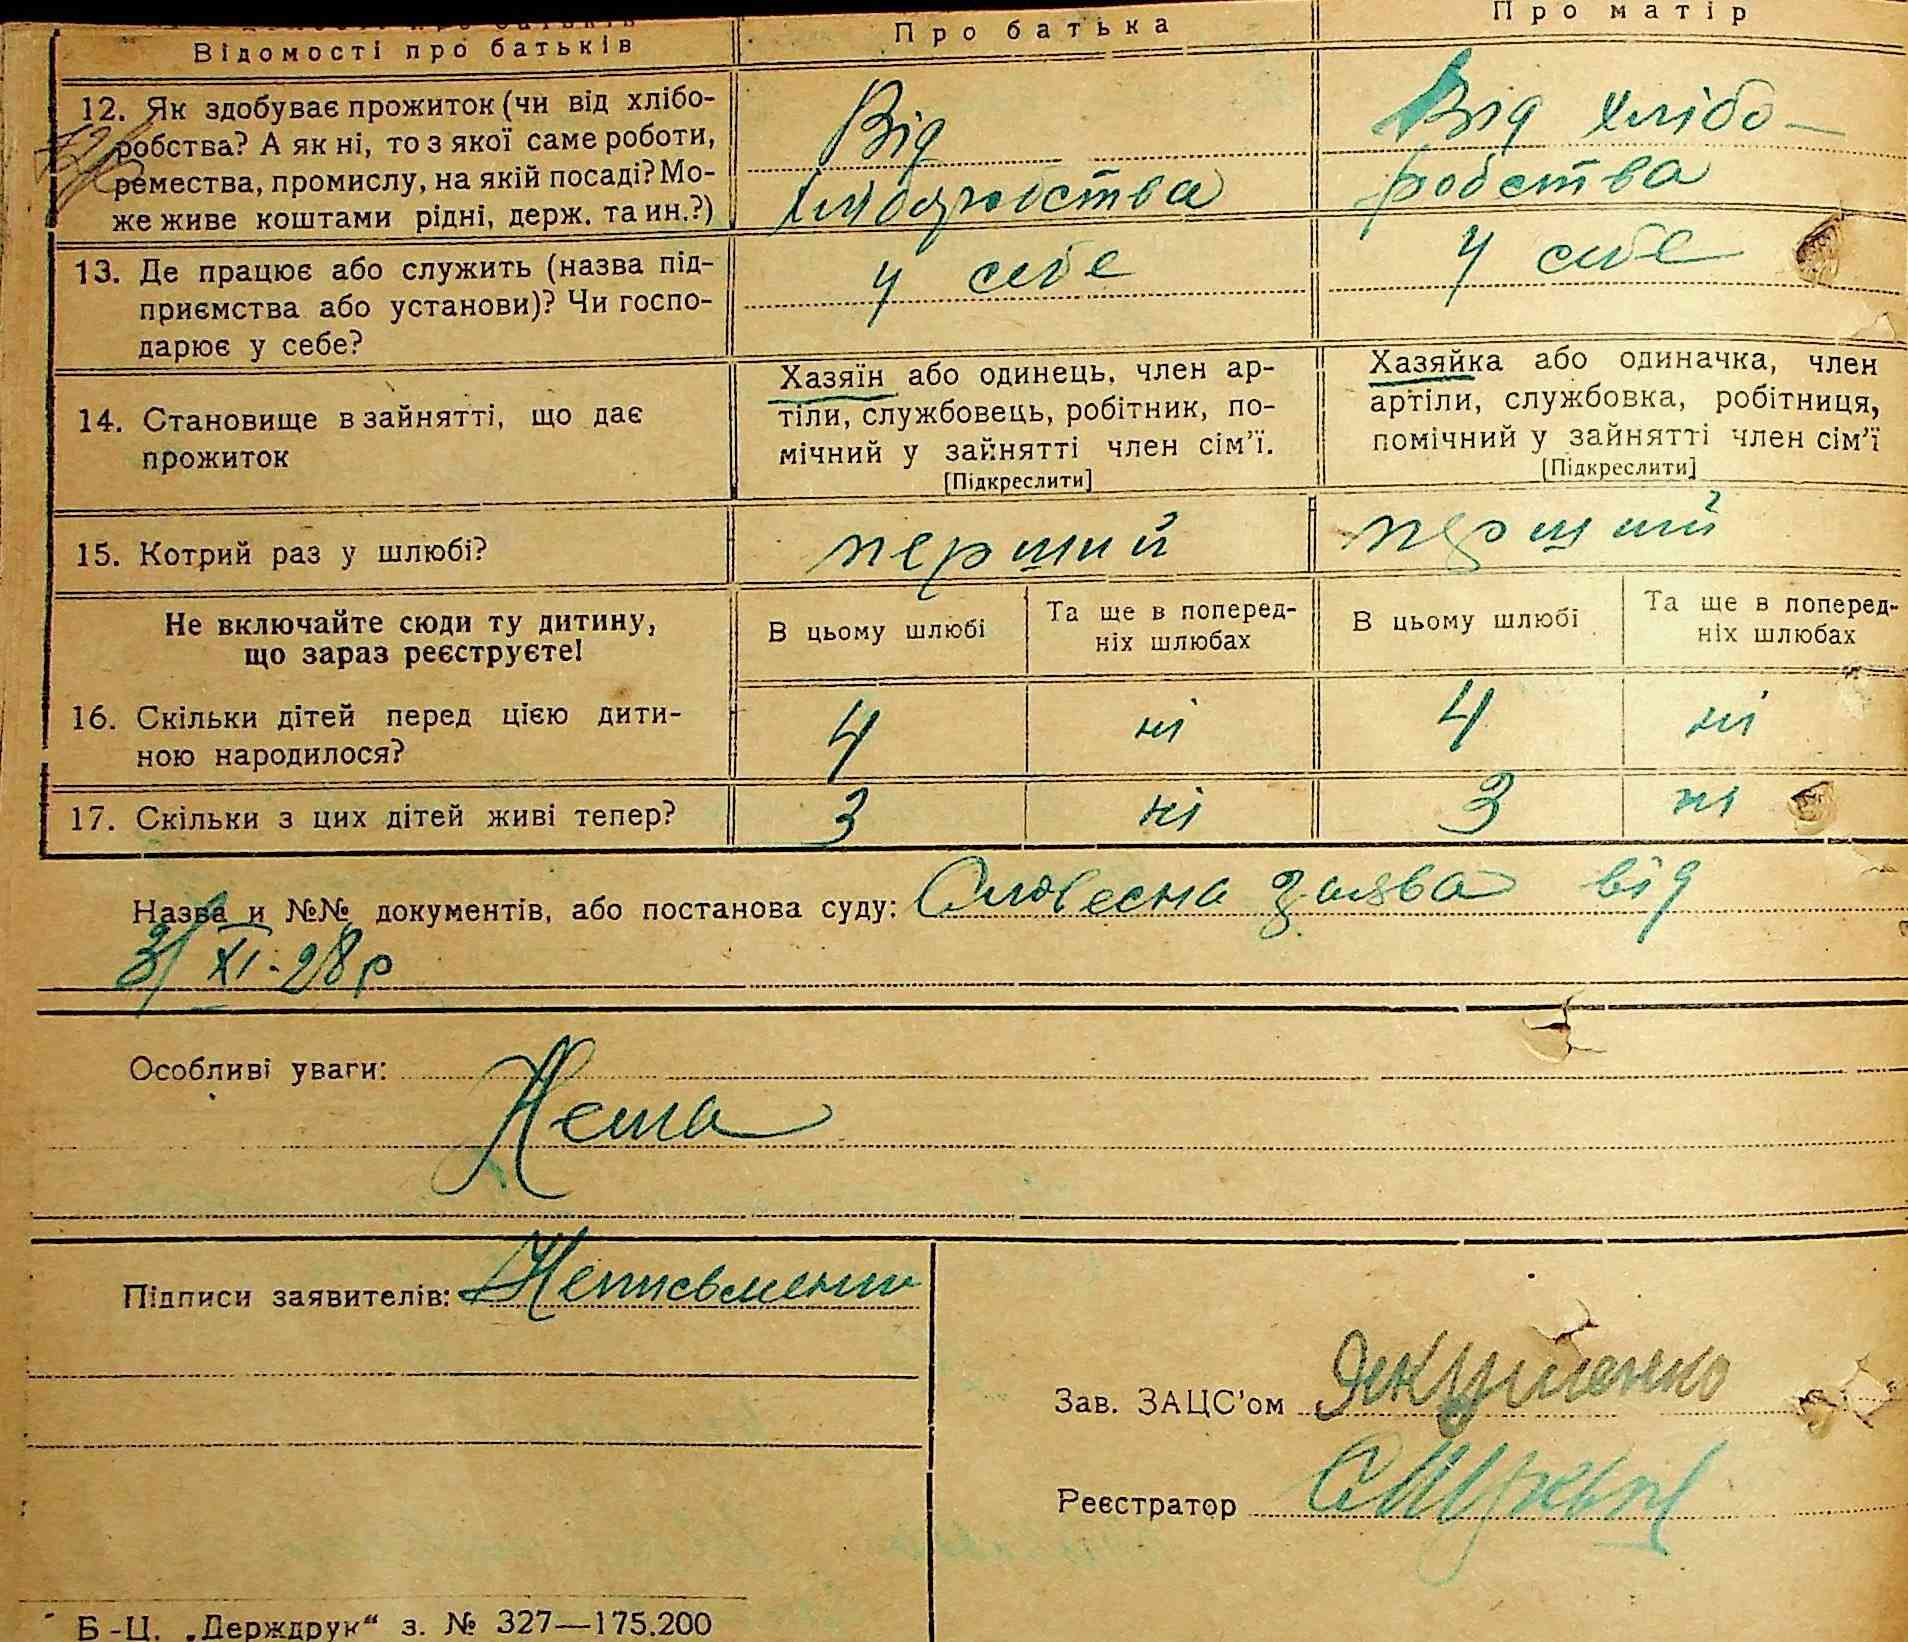 Відомості про батьків
Про батька
Про матір
12. Як здобуває прожиток (чи від хлібо-
робства? А як ні, то з якої саме роботи,
ремества, промислу, на якій посаді? Мо-
же живе коштами рідні, держ. та ин.?)
Від
хліборобства
Від хлібо-
робства
13. Де працює або служить (назва під-
приємства або установи)? Чи госпо-
дарює у себе?
У себе
У себе
14. Становище в зайнятті, що дає
прожиток
Хазяїн або одинець, член ар-
тіли, службовець, робітник, по-
мічний у зайнятті член сім'ї.
[Підкреслити]
Хазяйка або одиначка, член
артіли, службовка, робітниця,
помічний у зайнятті член сім'ї
[Підкреслити]
15. Котрий раз у шлюбі?
перший
перший
Не включайте сюди ту дитину,
що зараз реєструєте!
В цьому шлюбі
Та ще в поперед-
ніх шлюбах
В цьому шлюбі
Та ще в поперед-
ніх шлюбах
16. Скільки дітей перед цією дити-
ною народилося?
4
ні
4
ні
17. Скільки з цих дітей живі тепер?
3
ні
3
ні
Назва и №№ документів, або постанова суду: Словесна заява від
3/XI-28р
Особливі уваги:
Нема
Підписи заявителів: Неписьменні
Зав. ЗАЦС'ом Якименко
Реєстратор
Б-Ц. „Держдрук“ з. № 327—175.200